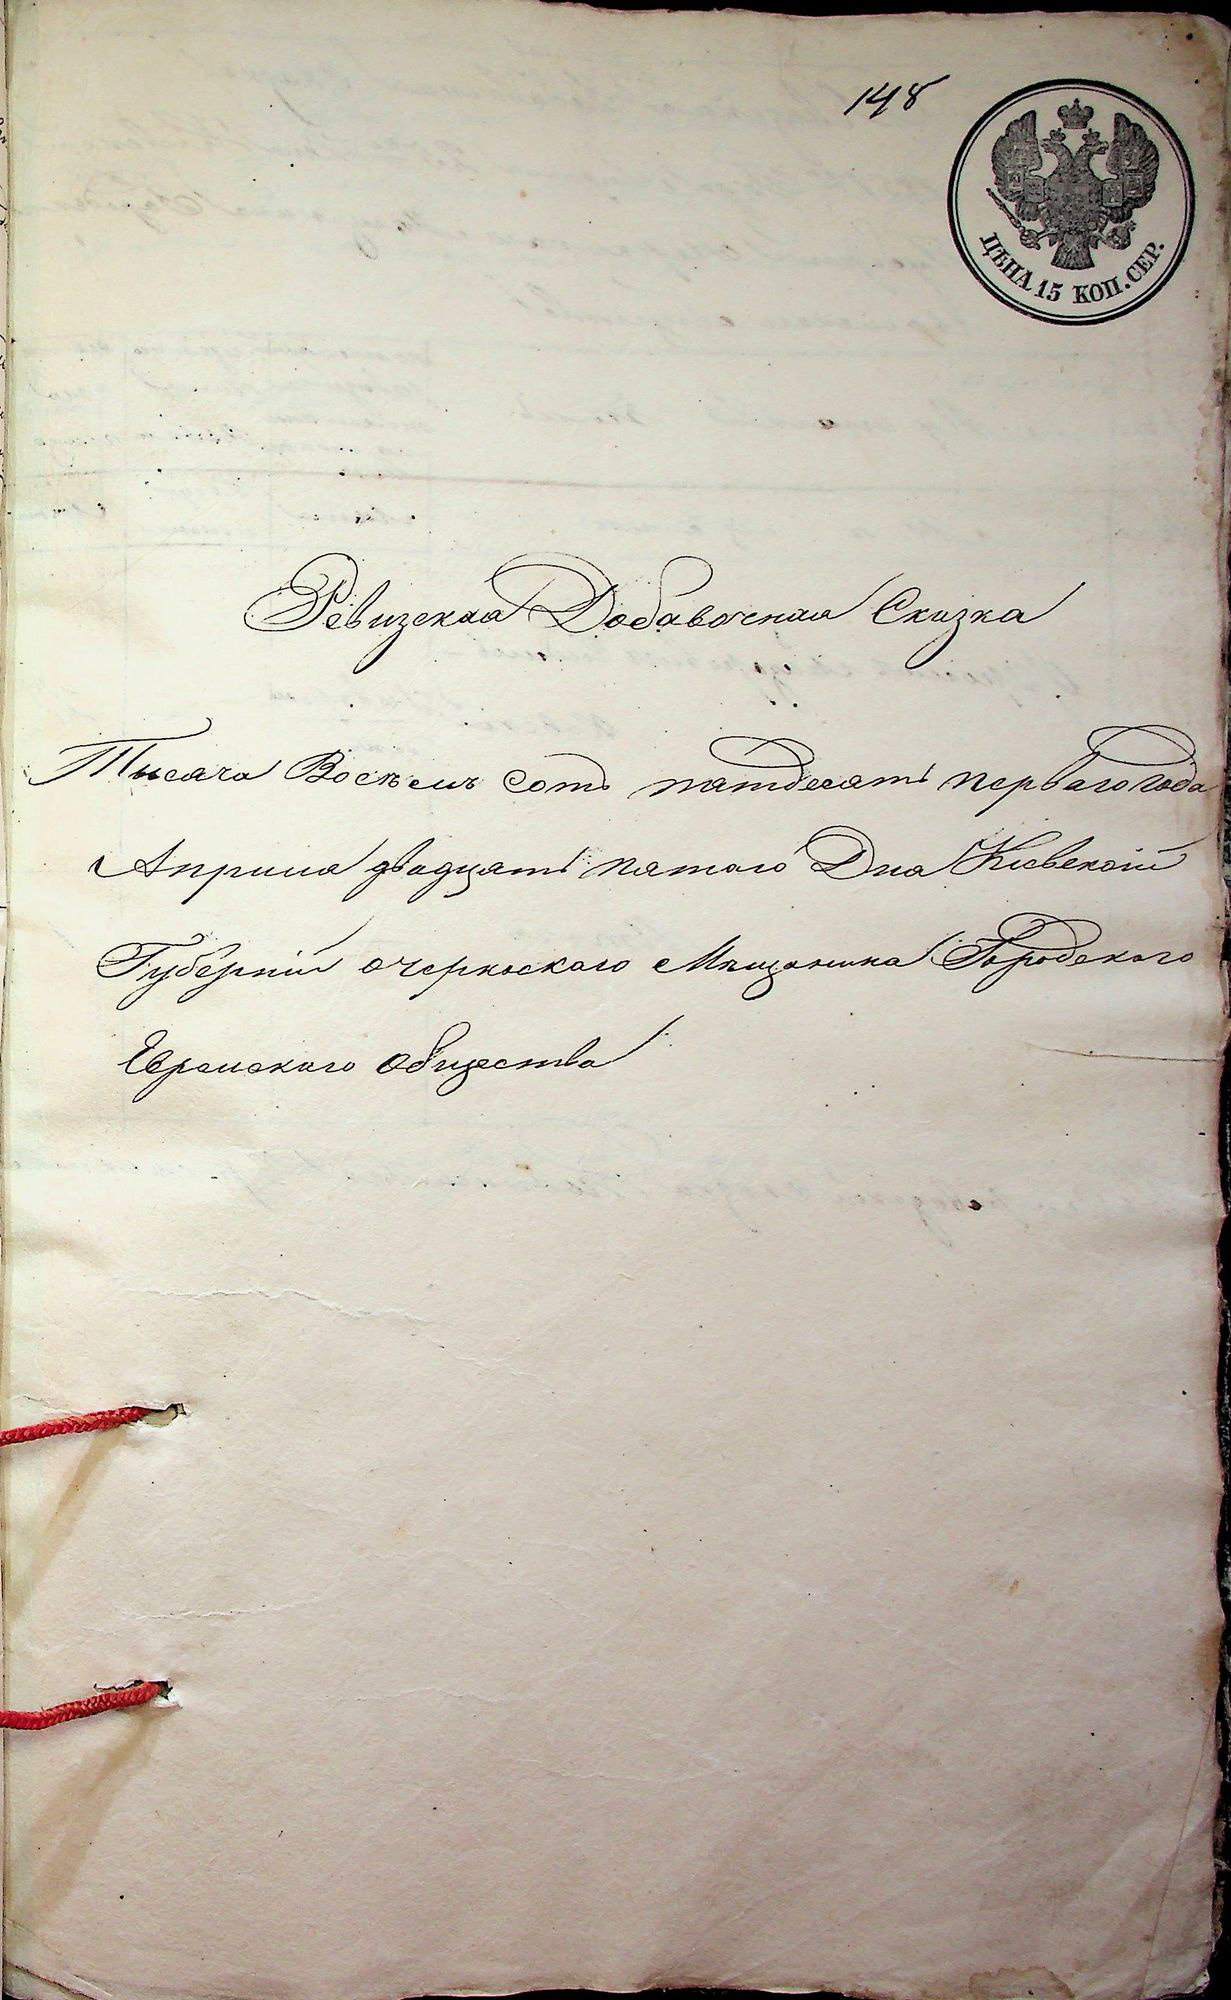 148
ЦѢНА 15 КОП. СЕР.
Ревизская Добавочная Сказка
Тысяча Восѣемъ Сотъ пятдесятъ перваго года
Априля двадцать пятаго Дня Кіевской
Губерніи о черкаскаго Мѣщанина Городскаго
Еврейскаго общества